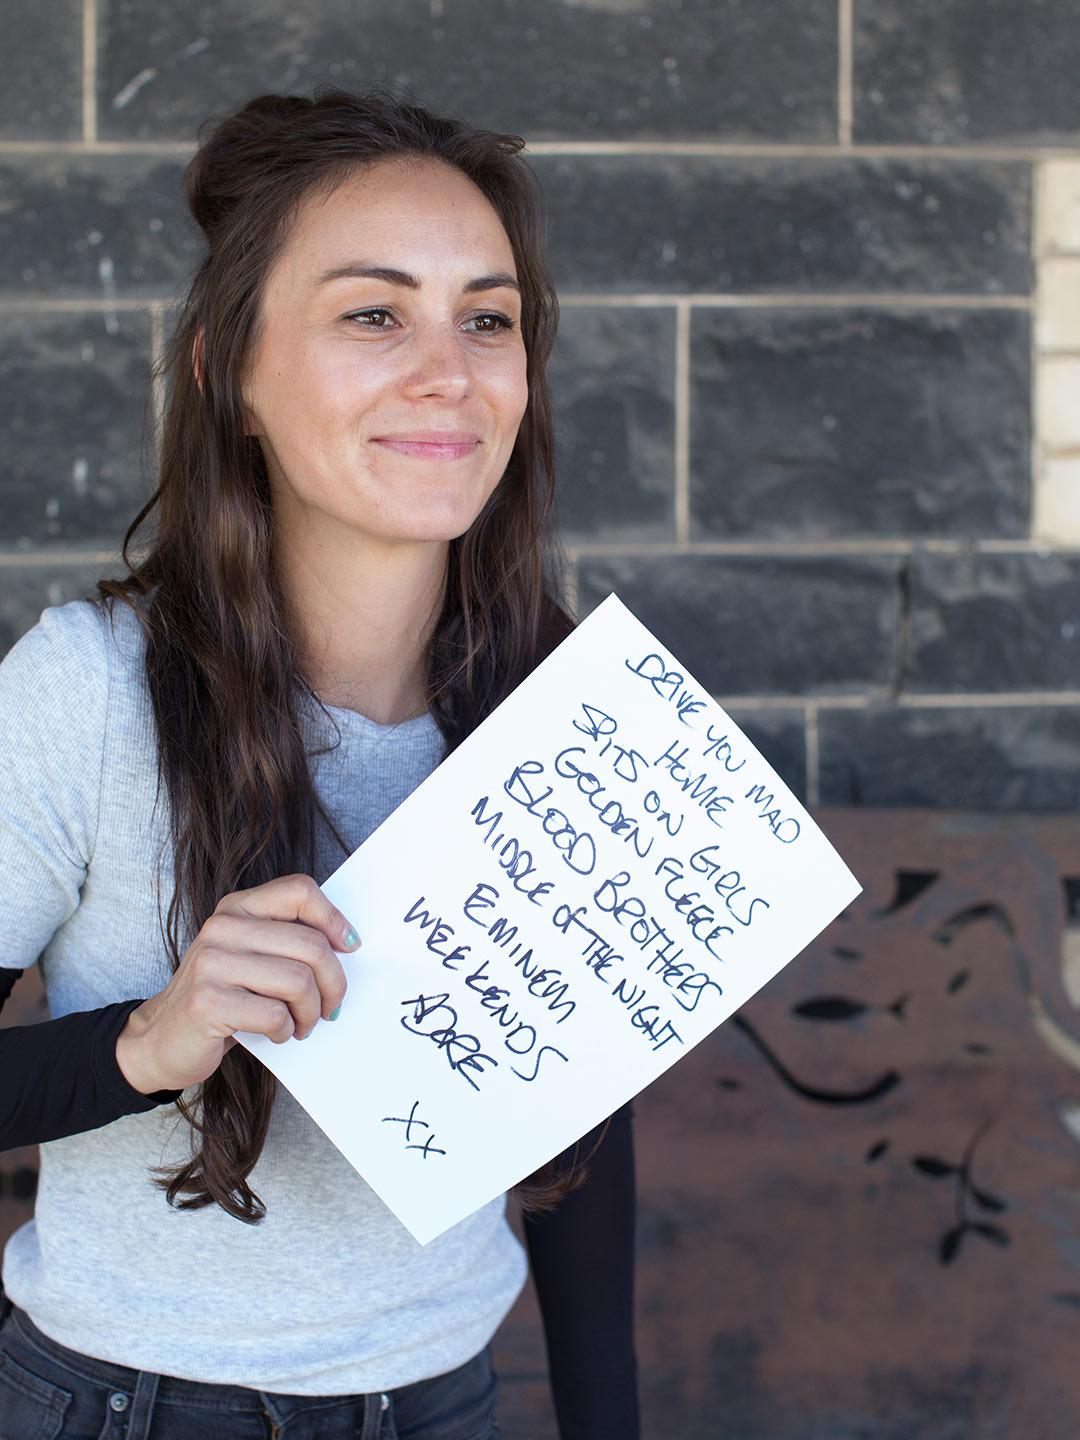 DRIVE YOU MAD
HOME
SPITS ON GIRLS
GOLDEN FLEECE
BLOOD BROTHERS
MIDDLE OF THE NIGHT
EMINEM
WEEKENDS
ADORE
XX